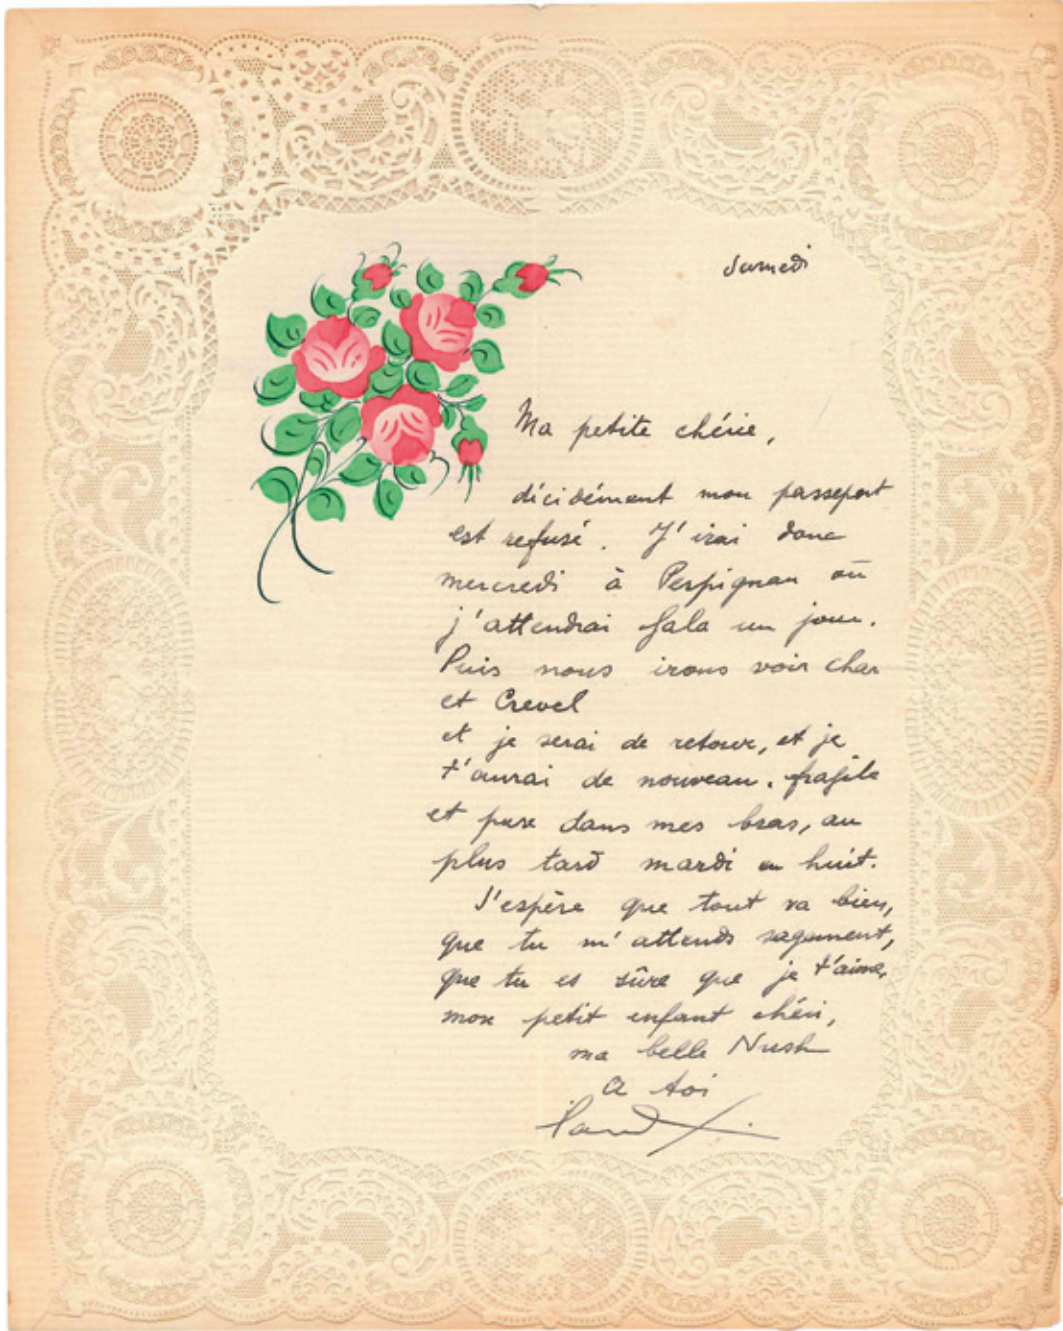 Samedi
Ma petite chérie,
décidément mon passeport
est refusé. J'irai donc
mercredi à Perpignan où
j'attendrai Gala un jour.
Puis nous irons voir Char
et Crevel
et je serai de retour, et je
t'aurai de nouveau, fragile
et pure dans mes bras, au
plus tard mardi en huit.
J'espère que tout va bien,
que tu m'attends sagement,
que tu es sûre que je t'aime,
mon petit enfant chéri,
ma belle Nush
A toi
Paul